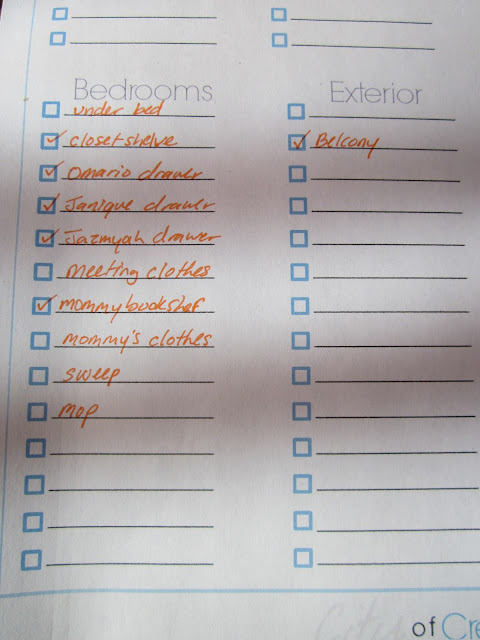 Bedrooms
under bed
closet shelve
Omario drawer
Janique drawer
Jazmyah drawer
Meeting clothes
mommy bookshef
mommy's clothes
sweep
mop
Exterior
Belcony
City of Cre